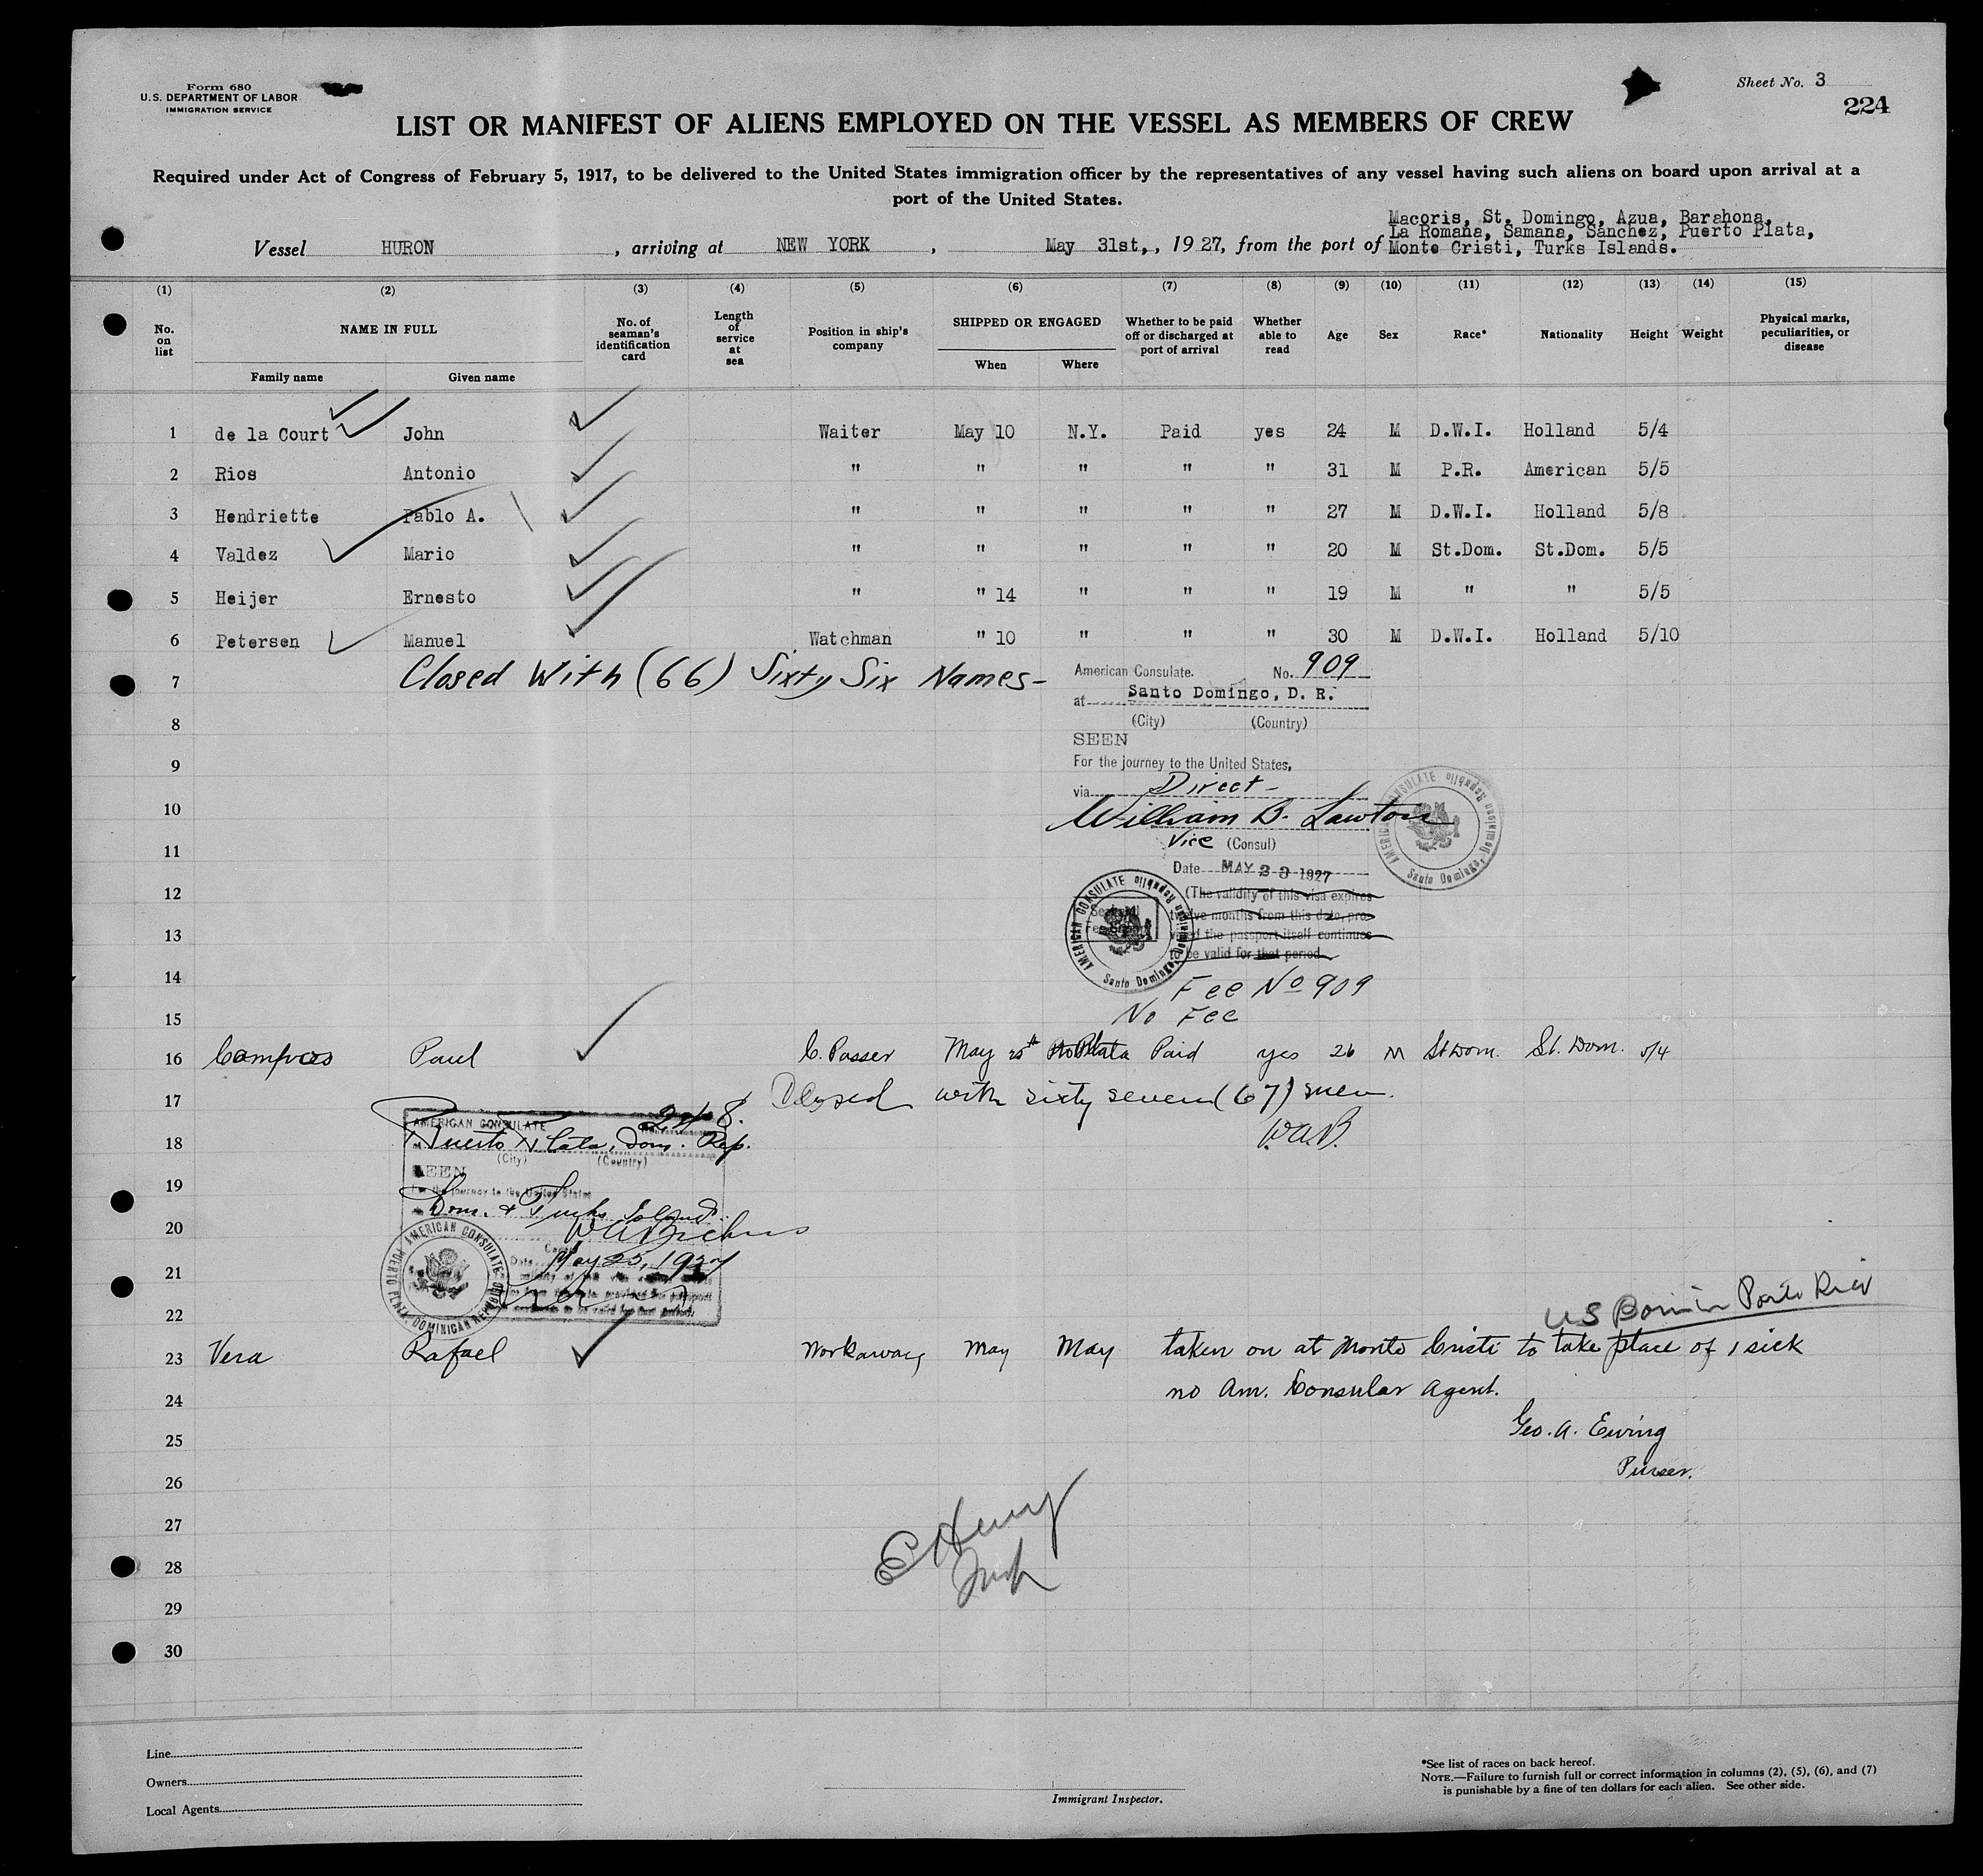 Form 680
U.S. DEPARTMENT OF LABOR
IMMIGRATION SERVICE
Sheet No. 3
224
LIST OR MANIFEST OF ALIENS EMPLOYED ON THE VESSEL AS MEMBERS OF CREW
Required under Act of Congress of February 5, 1917, to be delivered to the United States immigration officer by the representatives of any vessel having such aliens on board upon arrival at a
port of the United States.
Macoris, St. Domingo, Azua, Barahona,
La Romana, Samana, Sanchez, Puerto Plata,
Vessel HURON, arriving at NEW YORK, May 31st,, 1927, from the port of Monte Cristi, Turks Islands.
(1) (2) (3) (4) (5) (6) (7) (8) (9) (10) (11) (12) (13) (14) (15)
No. on list NAME IN FULL Family name Given name No. of seaman's identification card Length of service at sea Position in ship's company SHIPPED OR ENGAGED When Where Whether to be paid off or discharged at port of arrival Whether able to read Age Sex Race* Nationality Height Weight Physical marks, peculiarities, or disease
1 de la Court John Waiter May 10 N.Y. Paid yes 24 M D.W.I. Holland 5/4
2 Rios Antonio " " " " " 31 M P.R. American 5/5
3 Hendriette Pablo A. " " " " " 27 M D.W.I. Holland 5/8
4 Valdez Mario " " " " " 20 M St.Dom. St.Dom. 5/5
5 Heijer Ernesto " " 14 " " " 19 M " " 5/5
6 Petersen Manuel Watchman " 10 " " " 30 M D.W.I. Holland 5/10
7 Closed With (66) Sixty Six Names-
American Consulate. No. 909
at Santo Domingo, D. R.
8 (City) (Country)
SEEN
9 For the journey to the United States,
via Direct -
10 William B. Lawton
11 Vice (Consul)
Date MAY 23 1927
12 (The validity of this visa expires
twelve months from this date, pro-
13 vided the passport itself continues
to be valid for that period
AMERICAN CONSULATE Santo Domingo, Dominican Republic
AMERICAN CONSULATE Santo Domingo, Dominican Republic
14 Fee No 909
15 No Fee
16 Paul May 25th Plata Paid yes 26 M St Dom. St. Dom. 5/4
17 Closed with sixty seven (67) men.
W.A.B.
AMERICAN CONSULATE
18 Puerto Plata, Dom. Rep.
(City) (Country)
SEEN
19 For the journey to the United States
Dom. & Turks Island
20
May 25, 1927
AMERICAN CONSULATE PUERTO PLATA, DOMINICAN REPUBLIC
21
22 US Born in Porto Rico
23 Vera Rafael Workaway May May taken on at Monte Cristi to take place of 1 sick
24 no Am. Consular Agent.
25 Geo. A. Ewing
26 Purser.
27 E Henry
28
29
30
Line
Owners
Local Agents
Immigrant Inspector.
*See list of races on back hereof.
NOTE.—Failure to furnish full or correct information in columns (2), (5), (6), and (7)
is punishable by a fine of ten dollars for each alien. See other side.